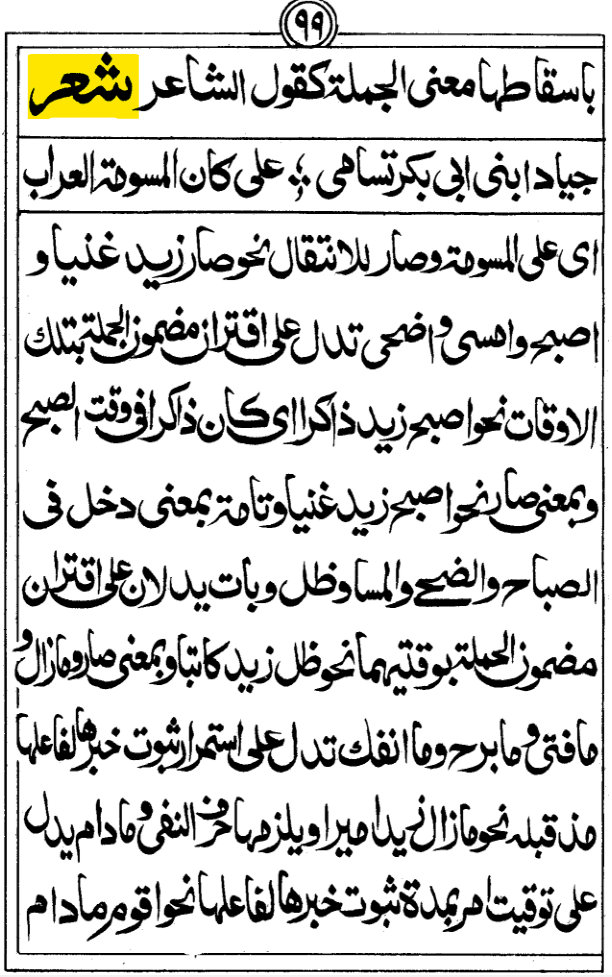 ٩٩
باسقاطها معنى الجملة كقول الشاعر شعر
جياد ابنى ابى بكر تسامى ؛ على كان المسومة العراب
اى على المسومة وصار للانتقال نحو صار زيد غنيا و
اصبح وامسى واضحى تدل على اقتران مضمون الجملة بتلك
الاوقات نحو اصبح زيد ذاكرا اى كان ذاكرا فى وقت الصبح
وبمعنى صار نحو اصبح زيد غنيا وتامة بمعنى دخل فى
الصباح والضحى والمسا وظل وبات يدلان على اقتران
مضمون الجملة بوقتيهما نحو ظل زيد كاتبا وبمعنى صار ومازال و
مافتى وما برح وما انفك تدل على استمرار ثبوت خبرها لفاعلها
مذ قبله نحو مازال زيد اميرا ويلزمها حرف النفى ومادام يدل
على توقيت امر بمدة ثبوت خبرها لفاعلها نحو اقوم مادام